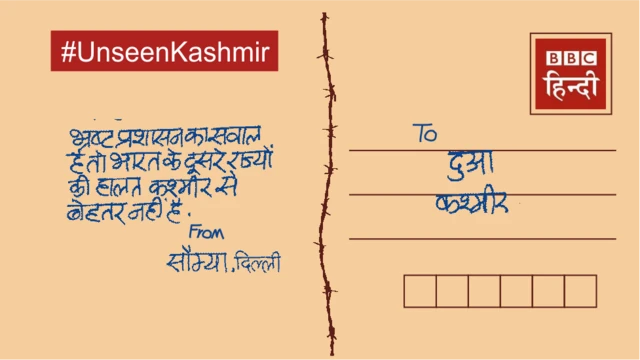 #UnseenKashmir
BBC
हिन्दी
भ्रष्ट प्रशासन का सवाल
है तो भारत के दूसरे राज्यों
की हालत कश्मीर से
बेहतर नहीं है.
From
सौम्या, दिल्ली
To
दुआ
कश्मीर